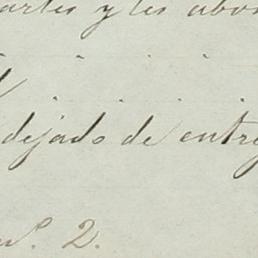 artes y les abo
dejado de entre
nº. 2.